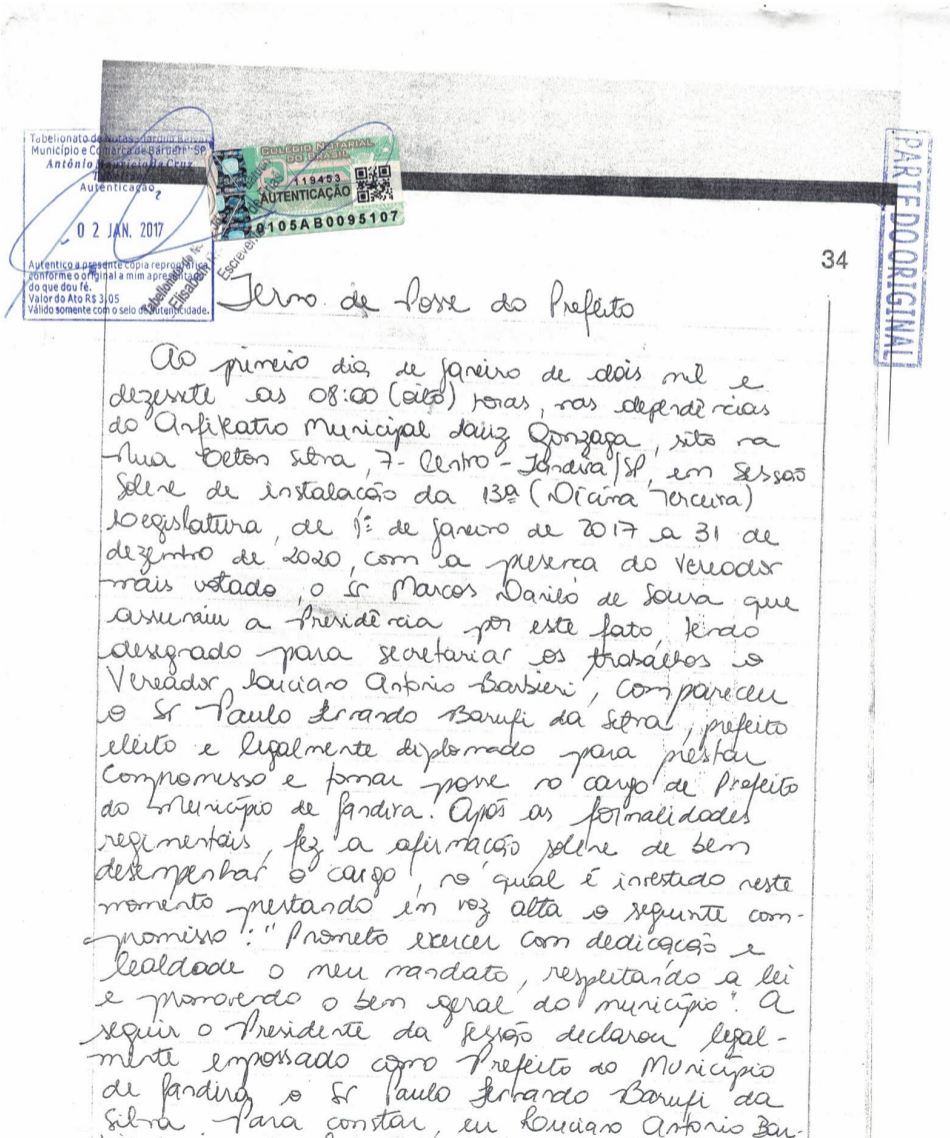 Tabelionato de Notas
Município e Comarca de Barueri - SP
Antônio Mauricio da Cruz
Tabelião
Autenticação
02 JAN. 2017
Autentico a presente cópia reprográfica
conforme o original a mim apresentado
do que dou fé.
Valor do Ato R$ 3,05
Válido somente com o selo de autenticidade.
COLÉGIO NOTARIAL
DO BRASIL
119453
AUTENTICAÇÃO
0105AB0095107
Tabelionato de
Elisabeth
Escrevente
PARTE DO ORIGINAL
34
Termo de Posse do Prefeito
Ao primeiro dia, de janeiro de dois mil e
dezessete as 08:00 (oito) horas, nas dependências
do Anfiteatro Municipal Luiz Gonzaga, sito na
Rua Elton Silva, 7 - Centro - Jandira/SP, em Sessão
Solene de instalação da 13ª (Décima Terceira)
Legislatura, de 1º de janeiro de 2017 a 31 de
dezembro de 2020, com a presença do Vereador
mais votado, o Sr Marcos Danilo de Sousa que
assumiu a Presidência por este fato, tendo
designado para secretariar os trabalhos o
Vereador Luciano Antonio Barbieri, compareceu
o Sr Paulo Fernando Barufi da Silva, prefeito
eleito e legalmente diplomado para prestar
compromisso e tomar posse no cargo de Prefeito
do Município de Jandira. Após as formalidades
regimentais, fez a afirmação solene de bem
desempenhar o cargo, no qual é investido neste
momento prestando em voz alta o seguinte com-
promisso: "Prometo exercer com dedicação e
lealdade o meu mandato, respeitando a lei
e promovendo o bem geral do município". A
seguir o Presidente da Sessão declarou legal-
mente empossado como Prefeito do Município
de Jandira, o Sr Paulo Fernando Barufi da
Silva. Para constar, eu Luciano Antonio Bar-